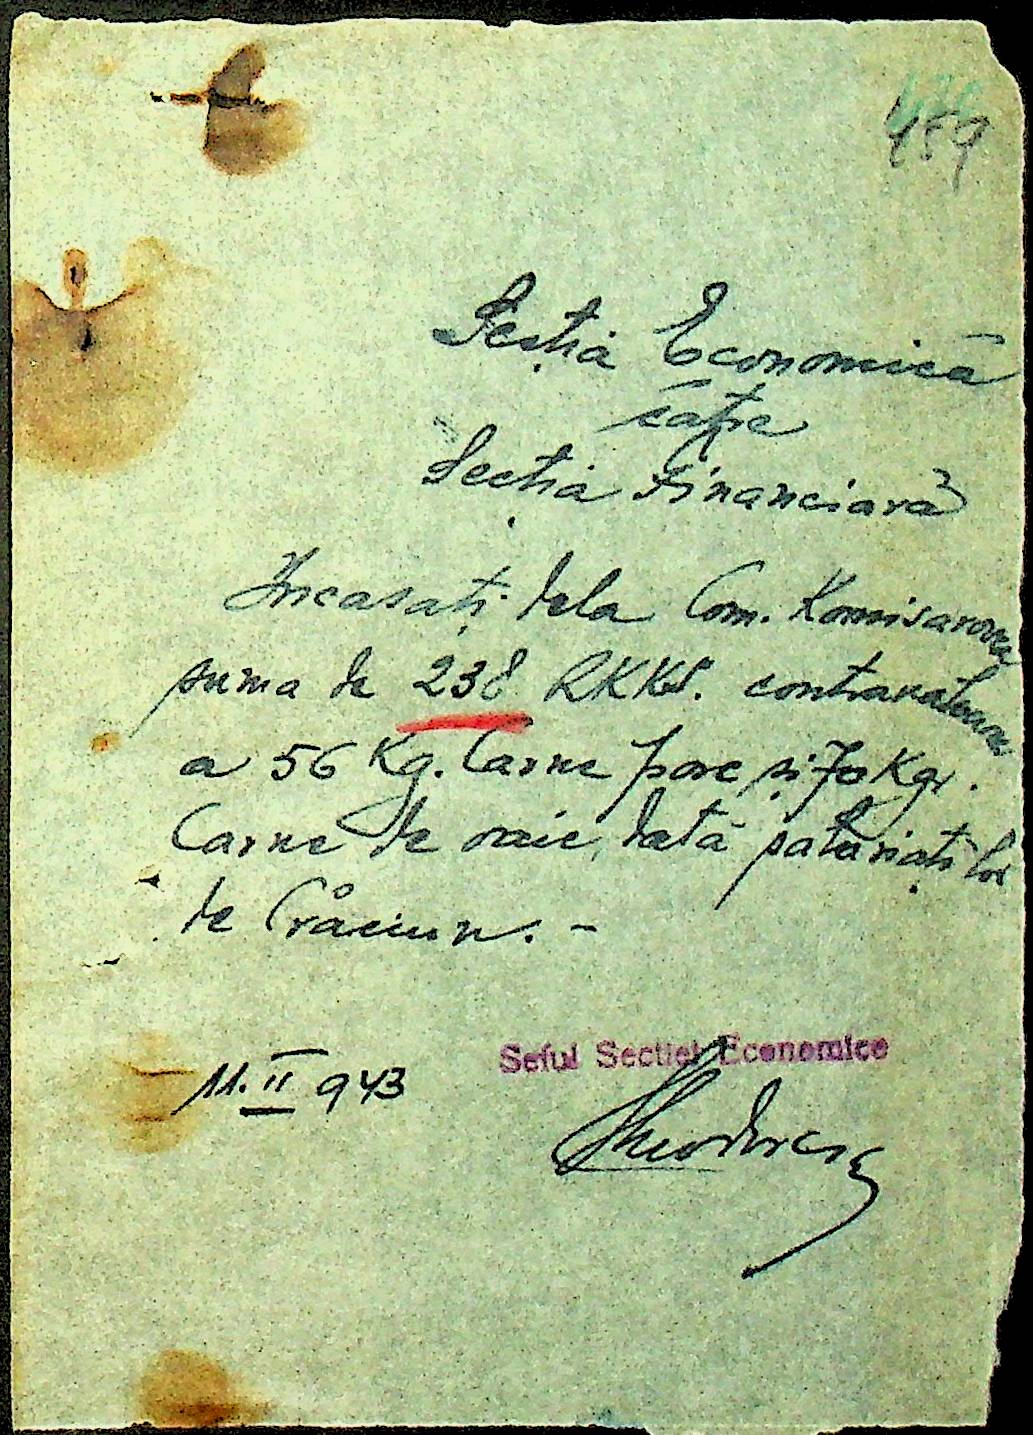 459
Secția Economică
cătře
Secția Financiară
Încasați dela Com. Komisarovca
suma de 238 RKKS. contravaloarea
a 56 Kg. Carne porc și 70 Kgr.
Carne de oaie, dată salariaților
de Crăciun. -
11.II 943
Seful Sectiei Economice